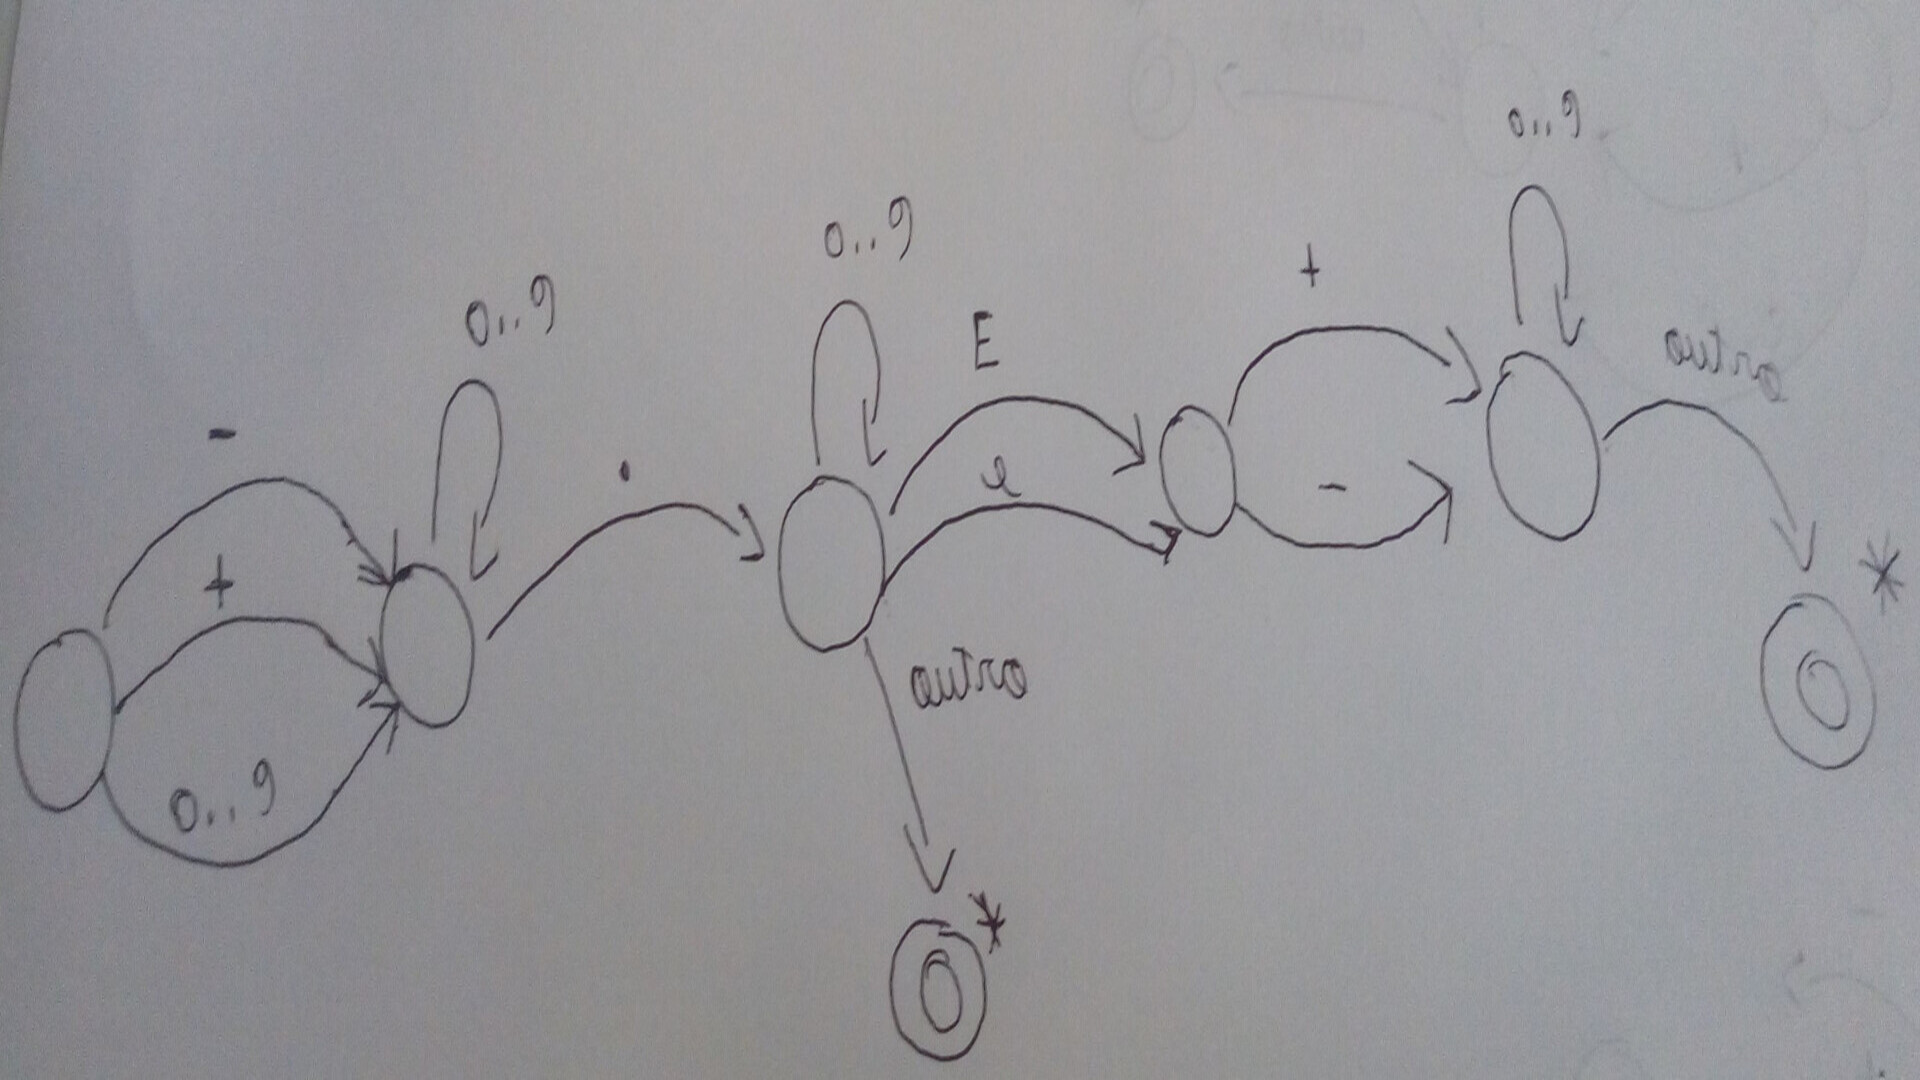 -
+
0..9
0..9
.
0..9
E
e
outro
*
+
-
0..9
outro
*